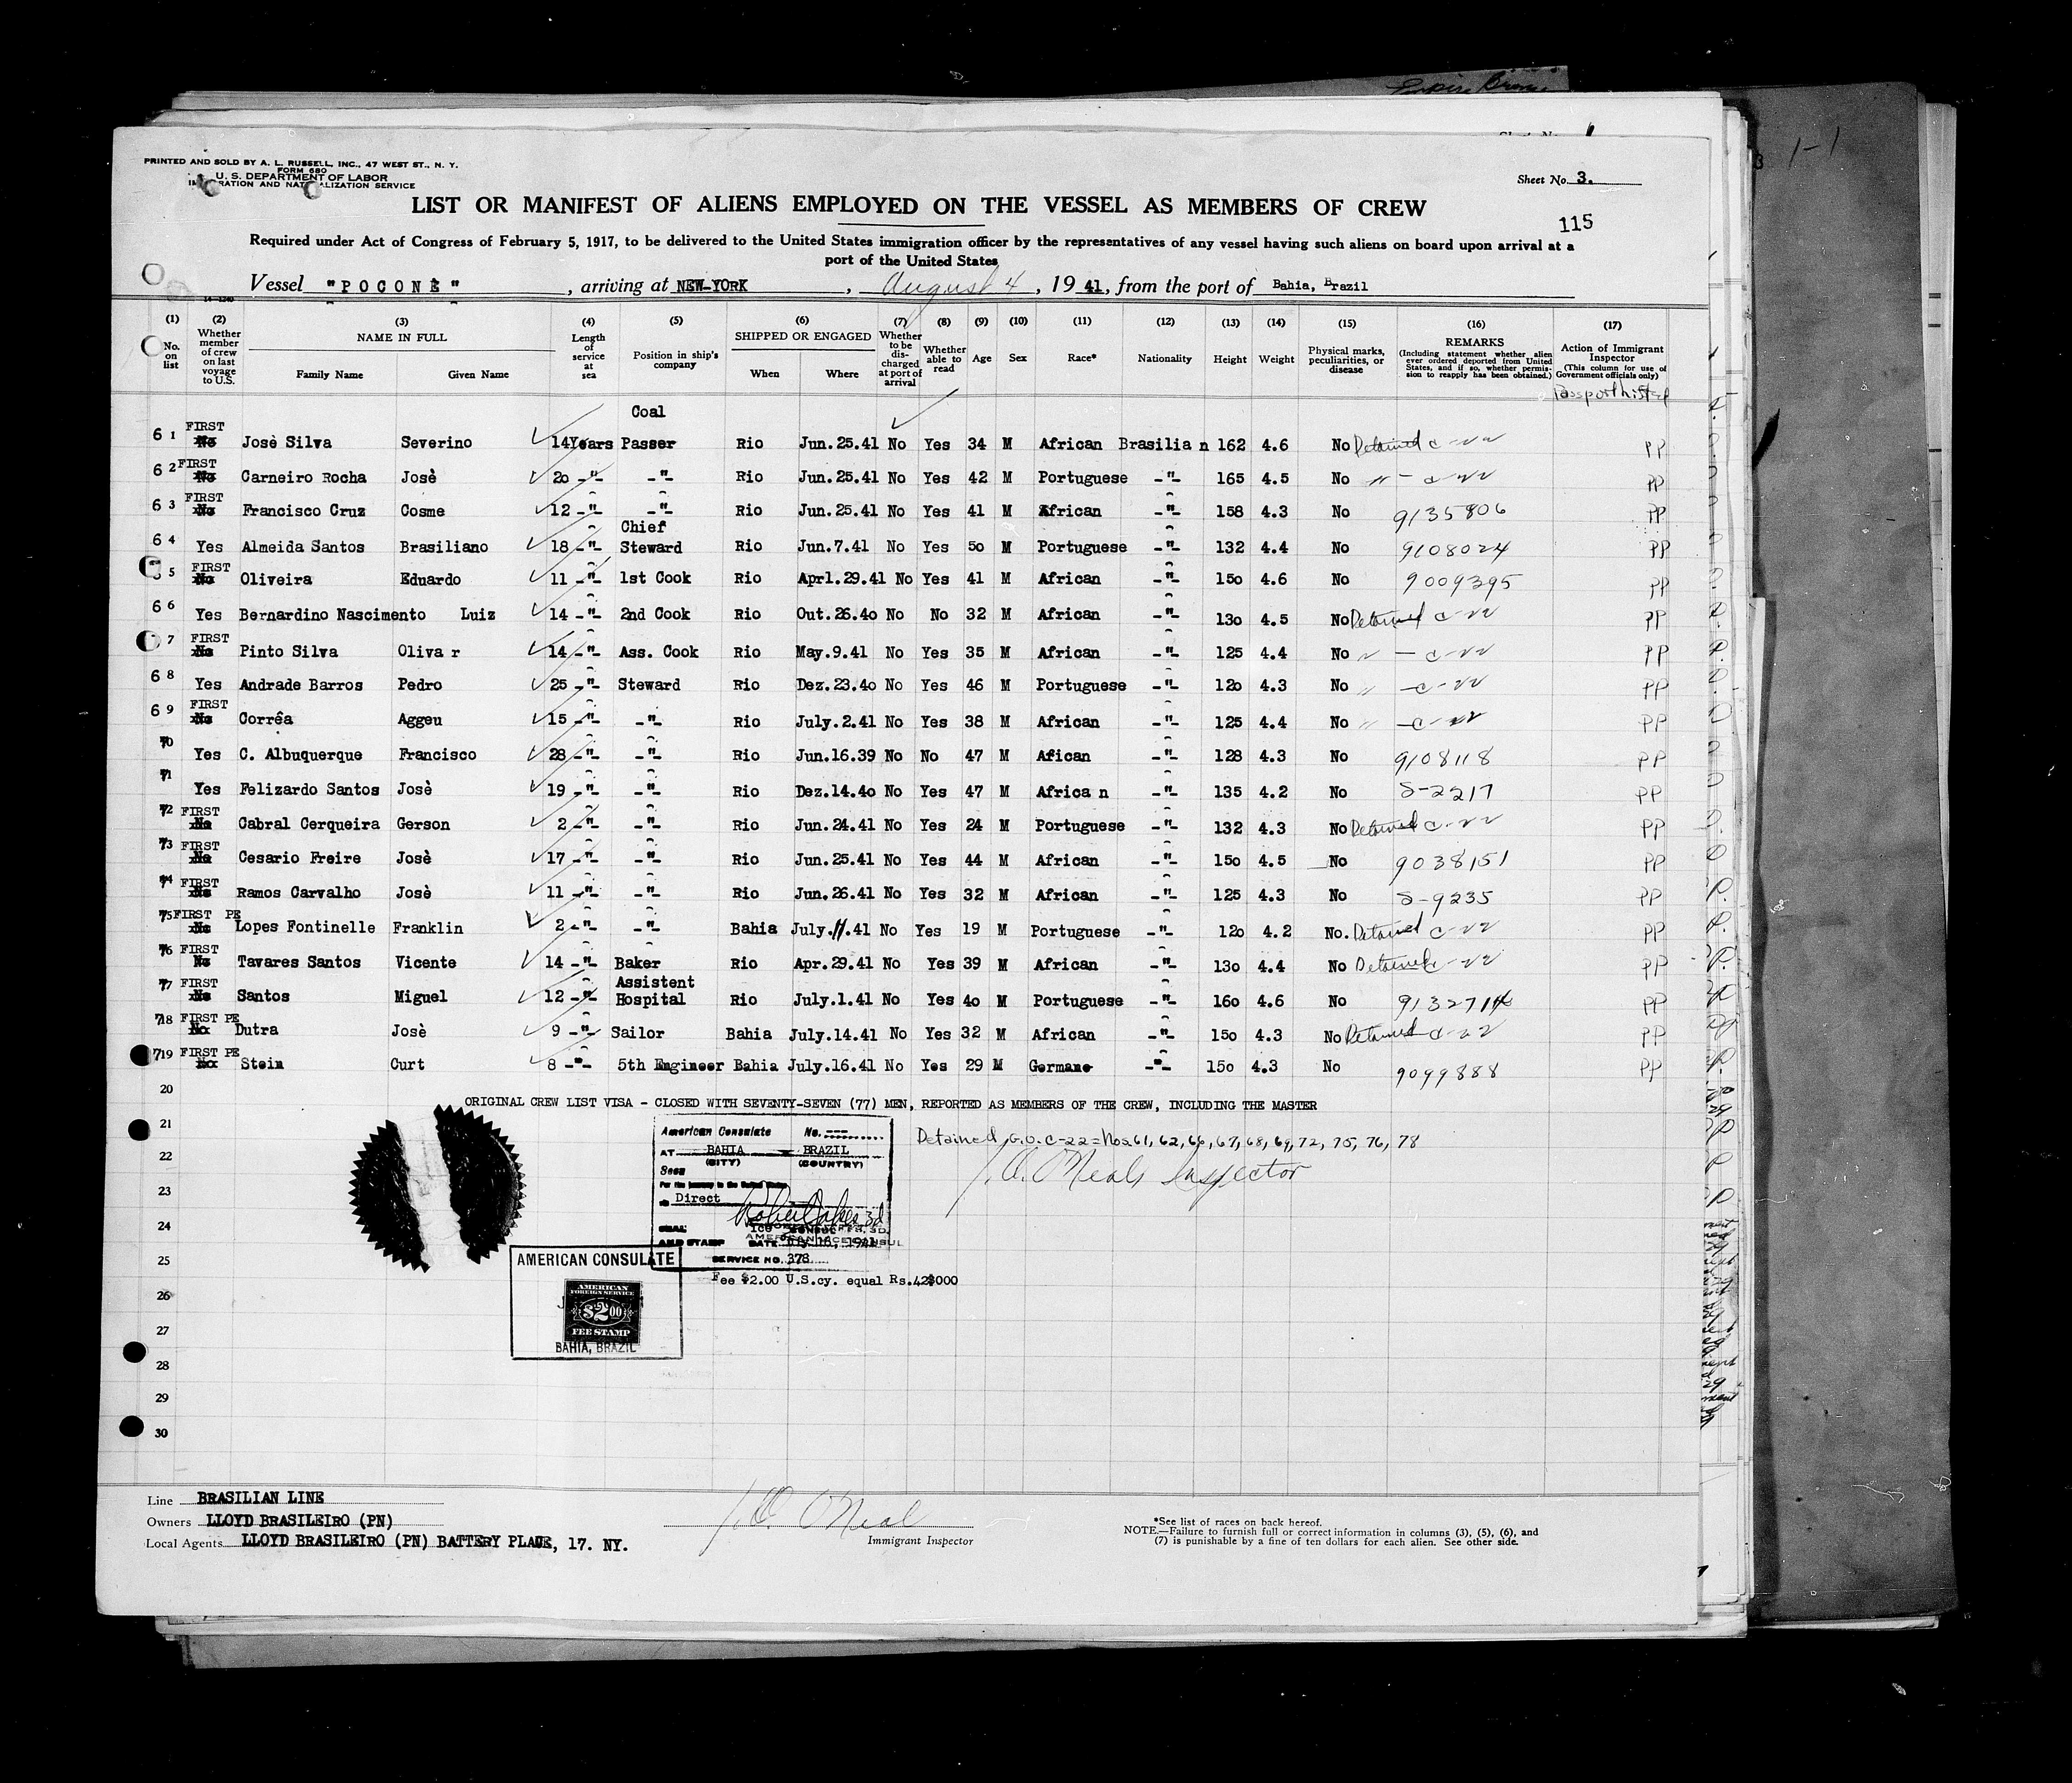 PRINTED AND SOLD BY A. L. RUSSELL, INC., 47 WEST ST., N. Y.
FORM 680
U. S. DEPARTMENT OF LABOR
IMMIGRATION AND NATURALIZATION SERVICE
Sheet No. 3.
LIST OR MANIFEST OF ALIENS EMPLOYED ON THE VESSEL AS MEMBERS OF CREW
115
Required under Act of Congress of February 5, 1917, to be delivered to the United States immigration officer by the representatives of any vessel having such aliens on board upon arrival at a
port of the United States
Vessel "POCONÈ", arriving at NEW-YORK, August 4, 1941, from the port of Bahia, Brazil
(1) No. on list
(2) Whether member of crew on last voyage to U.S.
(3) NAME IN FULL Family Name Given Name
(4) Length of service at sea
(5) Position in ship's company
(6) SHIPPED OR ENGAGED When Where
(7) Whether to be discharged at port of arrival
(8) Whether able to read
(9) Age
(10) Sex
(11) Race*
(12) Nationality
(13) Height
(14) Weight
(15) Physical marks, peculiarities, or disease
(16) REMARKS (Including statement whether alien ever ordered deported from United States, and if so, whether permission to reapply has been obtained.)
(17) Action of Immigrant Inspector (This column for use of Government officials only)
61 FIRST No Josè Silva Severino 14Years Coal Passer Rio Jun.25.41 No Yes 34 M African Brasilian 162 4.6 No Detained C-22 PP
62 FIRST No Carneiro Rocha Josè 20 -"- -"- Rio Jun.25.41 No Yes 42 M Portuguese -"- 165 4.5 No " - C-22 PP
63 FIRST No Francisco Cruz Cosme 12 -"- -"- Rio Jun.25.41 No Yes 41 M African -"- 158 4.3 No 9135806 PP
64 Yes Almeida Santos Brasiliano 18 -"- Chief Steward Rio Jun.7.41 No Yes 50 M Portuguese -"- 132 4.4 No 9108024 PP
65 FIRST No Oliveira Eduardo 11 -"- 1st Cook Rio Aprl.29.41 No Yes 41 M African -"- 150 4.6 No 9009395 PP
66 Yes Bernardino Nascimento Luiz 14 -"- 2nd Cook Rio Out.26.40 No No 32 M African -"- 130 4.5 No Detained C-22 PP
67 FIRST No Pinto Silva Olivar 14 -"- Ass. Cook Rio May.9.41 No Yes 35 M African -"- 125 4.4 No " - C-22 PP
68 Yes Andrade Barros Pedro 25 -"- Steward Rio Dez.23.40 No Yes 46 M Portuguese -"- 120 4.3 No " - C-22 PP
69 FIRST No Corrêa Aggeu 15 -"- -"- Rio July.2.41 No Yes 38 M African -"- 125 4.4 No " - C-22 PP
70 Yes C. Albuquerque Francisco 28 -"- -"- Rio Jun.16.39 No No 47 M Afican -"- 128 4.3 No 9108118 PP
71 Yes Felizardo Santos Josè 19 -"- -"- Rio Dez.14.40 No Yes 47 M African -"- 135 4.2 No S-2217 PP
72 FIRST No Cabral Cerqueira Gerson 2 -"- -"- Rio Jun.24.41 No Yes 24 M Portuguese -"- 132 4.3 No Detained C-22 PP
73 FIRST No Cesario Freire Josè 17 -"- -"- Rio Jun.25.41 No Yes 44 M African -"- 150 4.5 No 9038151 PP
74 FIRST No Ramos Carvalho Josè 11 -"- -"- Rio Jun.26.41 No Yes 32 M African -"- 125 4.3 No S-9235 PP
75 FIRST PE No Lopes Fontinelle Franklin 2 -"- -"- Bahia July.11.41 No Yes 19 M Portuguese -"- 120 4.2 No. Detained C-22 PP
76 FIRST No Tavares Santos Vicente 14 -"- Baker Rio Apr.29.41 No Yes 39 M African -"- 130 4.4 No Detained C-22 PP
77 FIRST No Santos Miguel 12 -"- Assistent Hospital Rio July.1.41 No Yes 40 M Portuguese -"- 160 4.6 No 9132714 PP
78 FIRST PE No Dutra Josè 9 -"- Sailor Bahia July.14.41 No Yes 32 M African -"- 150 4.3 No Detained C-22 PP
79 FIRST PE No Stein Curt 8 -"- 5th Engineer Bahia July.16.41 No Yes 29 M Germane -"- 150 4.3 No 9099888 PP
20
ORIGINAL CREW LIST VISA - CLOSED WITH SEVENTY-SEVEN (77) MEN, REPORTED AS MEMBERS OF THE CREW, INCLUDING THE MASTER
21
American Consulate No. ---
Detained, G.O. C-22 = Nos. 61, 62, 66, 67, 68, 69, 72, 75, 76, 78
22
AT BAHIA BRAZIL
(CITY) (COUNTRY)
J. A. O'Neal, Inspector
Seen
For the journey to the United States
23
Direct
24
SEAL
AND STAMP DATE July 16, 1941
25
SERVICE NO. 378
Fee $2.00 U.S.cy. equal Rs.42$000
AMERICAN CONSULATE
26
AMERICAN
FOREIGN SERVICE
$2.00
FEE STAMP
27
BAHIA, BRAZIL
28
29
30
Line BRASILIAN LINE
Owners LLOYD BRASILEIRO (PN)
Local Agents LLOYD BRASILEIRO (PN) BATTERY PLACE, 17. NY.
J. A. O'Neal
Immigrant Inspector
*See list of races on back hereof.
NOTE.—Failure to furnish full or correct information in columns (3), (5), (6), and
(7) is punishable by a fine of ten dollars for each alien. See other side.